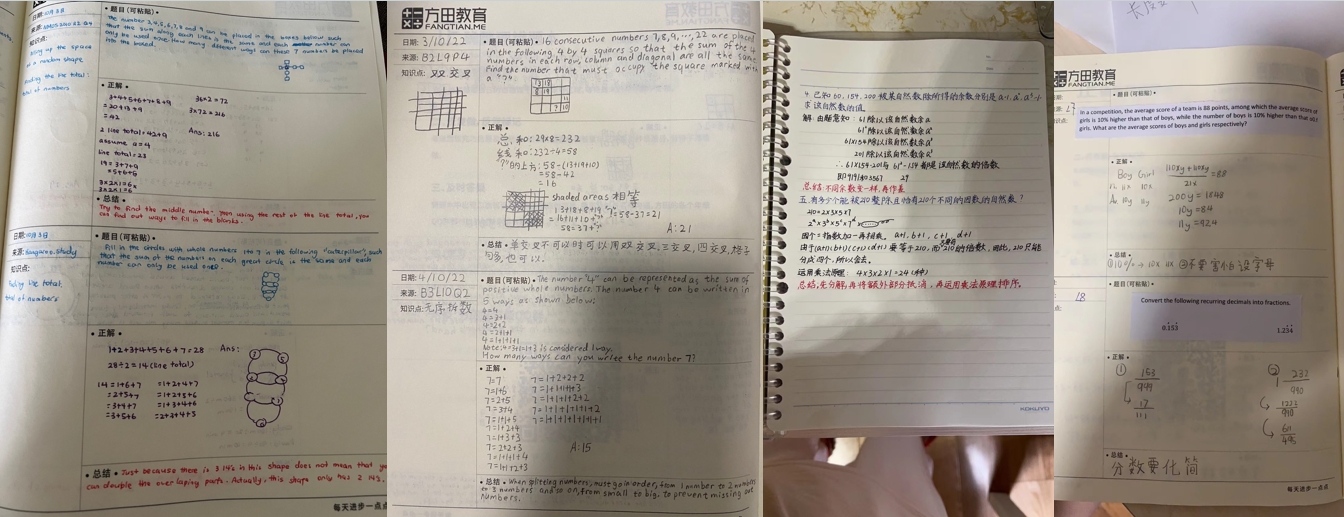 日期: 10月3日
来源:
知识点:
• 题目(可粘贴) •
The number 3,4,5,6,7,8 and 9 can be placed in the boxes below such
that the sum along each lines is the same and each number can
only be used once. How many different ways can these 7 numbers be placed
into the boxes?
• 正解 •
3+4+5+6+7+8+9
=42
36×2=72
3×72=216
Ans: 216
2 line total = 42+9
assume a=4
line total = 23
19=3+7+9
=5+6+8
3×2×1=6
3×2×1=6
• 总结 •
Try to find the middle number, then using the rest of the line total, you
can find out ways to fill in the blanks.
日期: 10月3日
来源: fangtian.study
知识点:
Finding line total:
total of numbers
• 题目(可粘贴) •
Fill in the circles with whole numbers 1 to 7 in the following "caterpillar", such
that the sum of the numbers on each great circle is the same and each
number can only be used once.
• 正解 •
1+2+3+4+5+6+7=28
Ans:
28÷2=14 (line total)
14=1+6+7
=2+5+7
=3+4+7
=3+5+6
=1+2+4+7
=1+2+5+6
=1+3+4+6
=2+3+4+5
• 总结 •
Just because there is 3 14s in this shape does not mean that you
can double the overlaping parts. Actually, this shape only has 2 14s.
每天进步一点点
方田教育
FANGTIAN.ME
日期: 3/10/22
来源: B2L9P4
知识点: 双交叉
• 题目(可粘贴) •
16 consecutive numbers 7,8,9,...,22 are placed
in the following 4 by 4 squares so that the sum of the 4
numbers in each row, column and diagonal are all the same.
Find the number that must occupy the square marked with
a "?".
13 18
8 19
11
? 10
• 正解 •
总和: 29×8=232
线和: 232÷4=58
"?"的上右: 58-(13+19+10)
=58-42
=16
shaded areas 相等
13+18+8+19
=16+11+10+"?"
58=37+"?"
"?"=58-37=21
A: 21
• 总结 •
单交叉不可以时可以用双交叉,三交叉,四交叉,格子
句多,也可以.
日期: 4/10/22
来源: B3L10Q2
知识点: 无序拆数
• 题目(可粘贴) •
The number "4" can be represented as the sum of
positive whole numbers. The number 4 can be written in
5 ways as shown below:
4=4
4=3+1
4=2+2
4=2+1+1
4=1+1+1+1
Note: 4=3+1=1+3 is considered 1 way.
How many ways can you write the number 7?
• 正解 •
7=7
7=1+6
7=2+5
7=3+4
7=1+1+5
7=1+2+4
7=1+3+3
7=2+2+3
7=1+1+1+4
7=1+1+2+3
7=1+2+2+2
7=1+1+1+1+3
7=1+1+1+2+2
7=1+1+1+1+1+2
7=1+1+1+1+1+1+1
A: 15
• 总结 •
When splitting numbers, must go in order, from 1 number to 2 numbers
to 3 numbers and so on, from small to big, to prevent missing out
numbers.
4. 已知60, 154, 200被某自然数除所得的余数分别是a-1, a², a³-1,
求该自然数的值.
解: 由题意知: 61除以该自然数余a
61²除以该自然数余a²
61×154除以该自然数余a³
201除以该自然数余a³
∴ 61×154-201与61²-154都是该自然数的倍数
即9193和3567
29
总结: 不同余数变一样,再作差
五. 有多少个能被210整除且恰有210个不同的因数的自然数?
210=2×3×5×7
因个=指数加一再相乘. a+1, b+1, c+1, d+1
由于(a+1)(b+1)(c+1)(d+1)要等于210, 而210的倍数, 因此, 210只能
分成四个, 所以会去.
运用乘法原理: 4×3×2×1=24 (种)
总结, 先分解, 再将额外部分抵消, 再运用乘法原理排序.
KOKUYO
方田教育
FANGTIAN.ME
来源: L7
• 题目(可粘贴) •
In a competition, the average score of a team is 88 points, among which the average score of
girls is 10% higher than that of boys, while the number of boys is 10% higher than that of
girls. What are the average scores of boys and girls respectively?
• 正解 •
Boy Girl
11x 10x
Av 10y 11y
110xy+110xy
21x
=88
220y=1848
10y=84
11y=92.4
• 总结 •
L8
• 题目(可粘贴) •
Convert the following recurring decimals into fractions.
0.1̇53̇
1.23̇4̇
• 正解 •
①
153
999
17
111
②
1 232
990
1222
990
611
495
• 总结 •
分数要化简
每天进步一点点